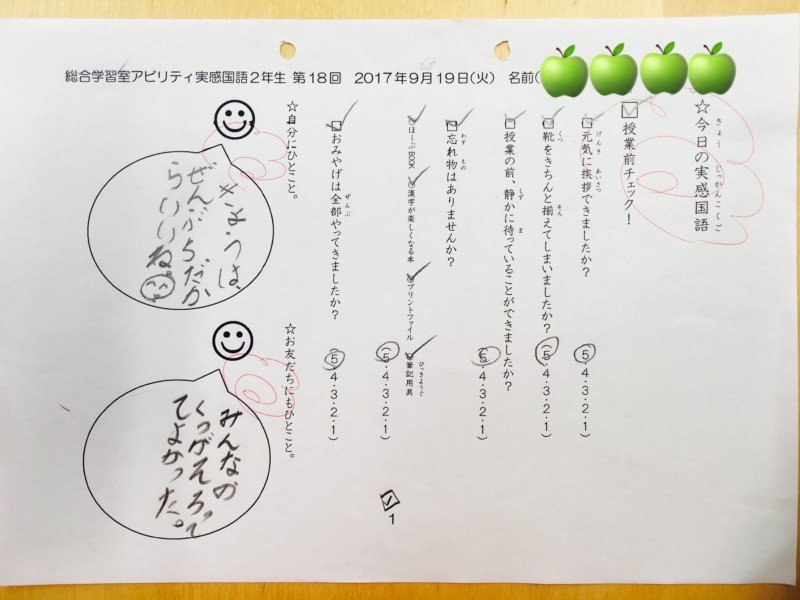 総合学習室アビリティ実感国語2年生 第18回 2017年9月19日(火) 名前(
☆今日の実感国語
きょう じっかんこくご
☑授業前チェック!
□元気に挨拶できましたか? (5・4・3・2・1)
げんき あいさつ
□靴をきちんと揃えてしまいましたか? (5・4・3・2・1)
くつ そろ
□授業の前、静かに待っていることができましたか? (5・4・3・2・1)
しず ま
□忘れ物はありませんか?
わす もの
○ほーぷBOOK ○漢字が楽しくなる本 ○プリントファイル ○筆記用具
ひっきようぐ
(5・4・3・2・1)
□おみやげは全部やってきましたか? (5・4・3・2・1)
ぜんぶ
☆自分にひとこと。
きょうは、
ぜんぶ5だか
らいいね。
☆お友だちにもひとこと。
みんなの
くつがそろって
てよかった。
1